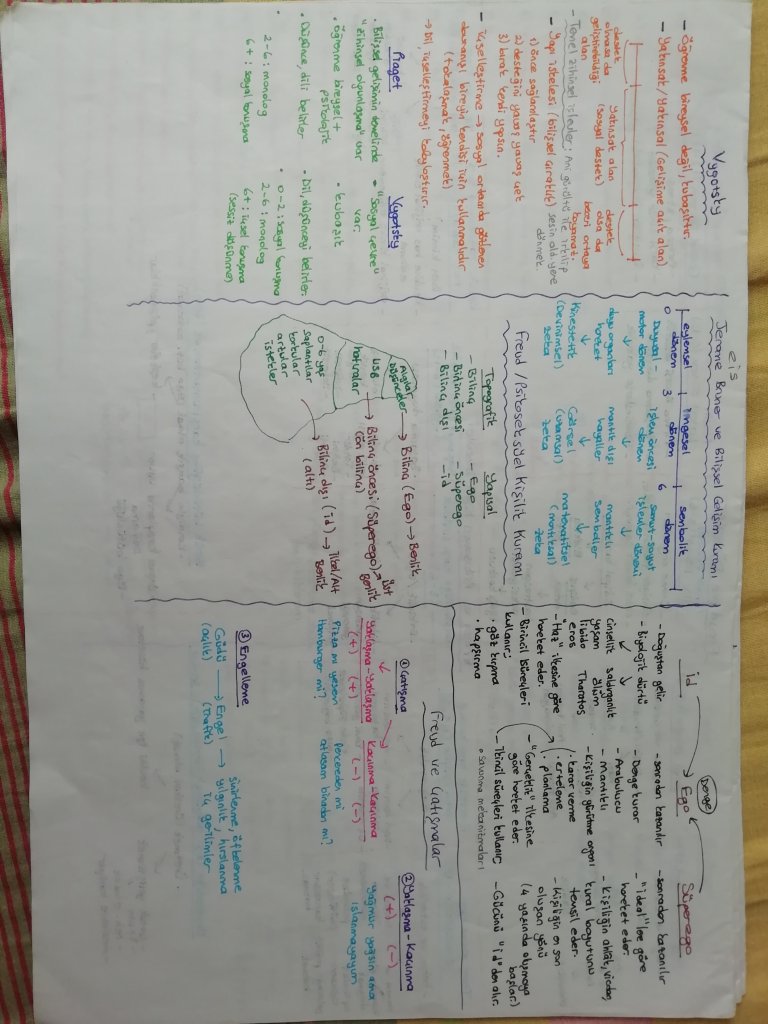 Vygotsky
- Öğrenme bireysel değil, kubaşıktır.
- Yakınsat/Yakınsal (Gelişime açık alan)
destek
olmasa da
geliştirebildiği
alan
Yakınsak alan
(sosyal destek)
destek
olsa da
bazen ortaya
koyamaz!
- Temel zihinsel işlevler: Ani gürültü ile irkilip sesin olduğu yere dönmek
- Yapı iskelesi (bilişsel çıraklık)
1) önce sağlamlaştır
2) desteğini yavaş yavaş çek
3) bırak kendi yapsın.
- içselleştirme → sosyal ortamda gözlenen
davranışı bireyin kendisi için kullanmalıdır
(tokalaşmak, öğrenmek)
→ Dil, içselleştirmeyi kolaylaştırır.
Piaget
• Bilişsel gelişimin temelinde
"zihinsel olgunlaşma" var
• öğrenme bireysel +
psikolojik
• Düşünce, dili belirler
2-6: monolog
6+: sosyal konuşma
Vygotsky
• "Sosyal çevre"
var.
• kubaşık
• Dil, düşünceyi belirler.
• 0-2: sosyal konuşma
2-6: monolog
6+: içsel konuşma
(sessiz düşünme)
eis
Jerome Bruner ve Bilişsel Gelişim Kuramı
0 3 6
eylemsel
dönem
imgesel
dönem
sembolik
dönem
Duyusal-
motor dönem
↓
duyu organları
hareket
↓
Kinestetik
(Devinimsel)
zeka
işlem öncesi
dönem
↓
mantık dışı
hayaller
↓
Görsel
(uzamsal)
zeka
somut-soyut
işlemler dönemi
↓
mantıklı
semboller
↓
matematiksel
(mantıksal)
zeka
Freud / Psikoseksüel Kişilik Kuramı
Topografik
- Bilinç
- Bilinç öncesi
- Bilinç dışı
Yapısal
- Ego
- Süperego
- id
Algılar
Düşünceler
USB
hatıralar
0-6 yaş
Saplantılar
korkular
arzular
istekler
→ Bilinç (Ego) → Benlik
→ Bilinç öncesi (Süperego) → üst Benlik
(ön bilinç)
→ Bilinç dışı (id) → İlkel/Alt Benlik
(altı)
id
- Doğuştan gelir
- Biyolojik dürtü
cinsellik
yaşam
libido
eros
saldırganlık
ölüm
Thanatos
- "Haz" ilkesine göre
hareket eder.
- Birincil süreçleri
kullanır;
• göz kırpma
• hapşırma
Denge
Ego
- sonradan kazanılır
- Denge kurar
- Arabulucu
- mantıklı
- Kişiliğin yürütme organı
• karar verme
• erteleme
• planlama
- "Gerçeklik" ilkesine
göre hareket eder.
- İkincil süreçleri kullanır;
• savunma mekanizmaları
Süperego
- sonradan kazanılır
- "ideal"lere göre
hareket eder.
- Kişiliğin ahlak, vicdan,
kural boyutunu
temsil eder.
- Kişiliğin en son
oluşan yönü
(4 yaşında oluşmaya
başlar.)
- Gücünü "id"den alır.
Freud ve Çatışmalar
① Çatışma
Yaklaşma-Yaklaşma
(+) (+)
Pizza mı yesem
Hamburger mi?
Kaçınma-Kaçınma
(-) (-)
Pencereden mi
atlasam binadan mı?
② Yaklaşma-Kaçınma
(+) (-)
Yağmur yağsın ama
ıslanmayayım
③ Engelleme
Güdü → Engel → sinirlenme, öfkelenme
(açlık) (Trafik) yılgınlık, hırslanma
iç gerilimler